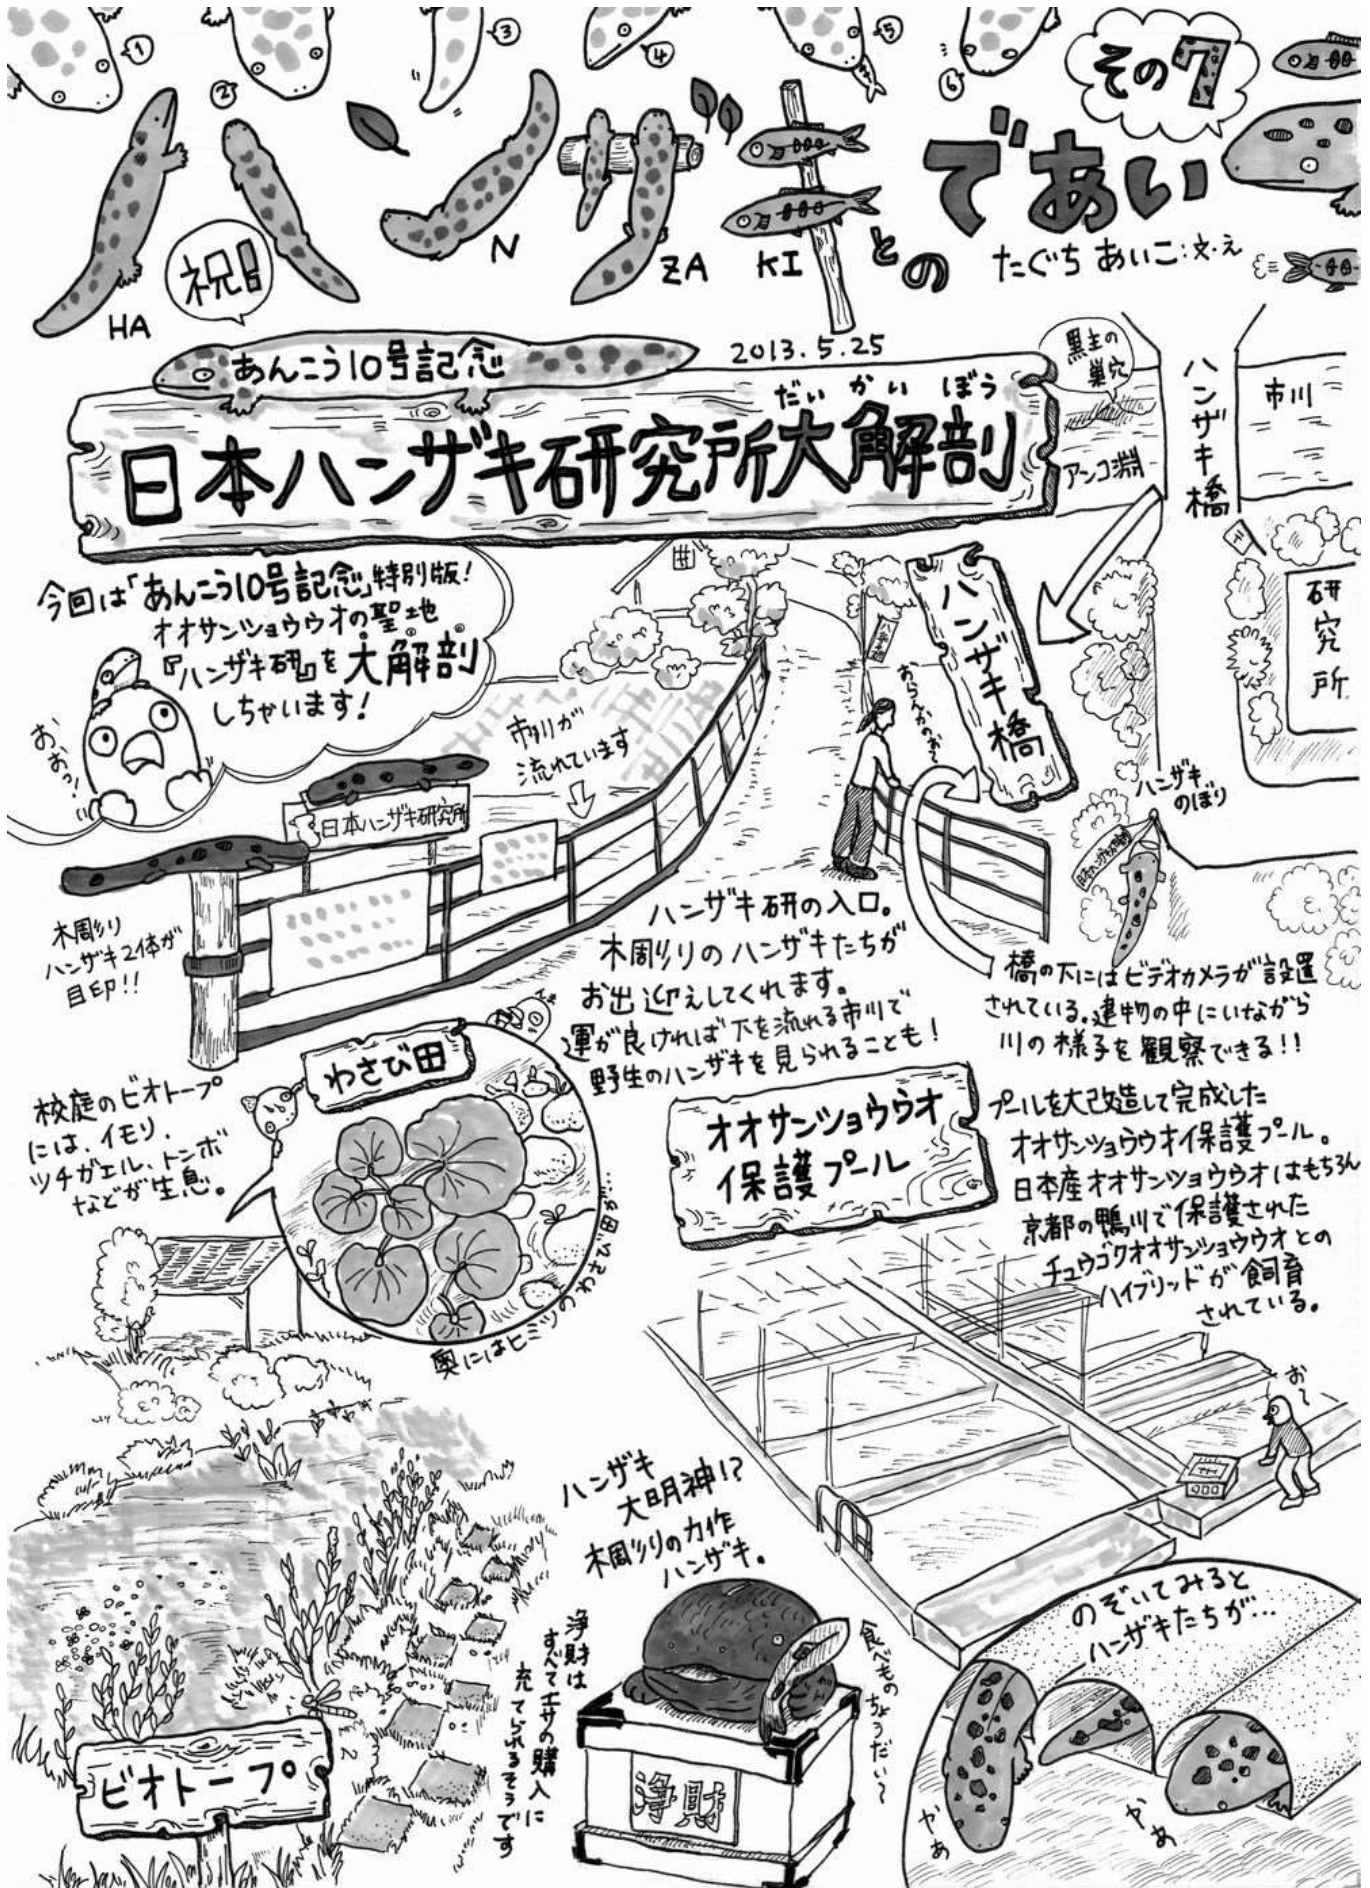 ①
②
③
④
⑤
⑥
その7
ハンザキ
HA
N
ZA
KI
との
であい
たぐち あいこ:文・え
祝!!
あんこう10号記念
2013.5.25
だい かい ぼう
日本ハンザキ研究所大解剖
黒主の
巣穴
アンコ淵
ハンザキ橋
市川
研究所
今回は「あんこう10号記念」特別版!
オオサンショウウオの聖地
『ハンザキ研』を大解剖
しちゃいます!
おおっ!
市川が
流れています
日本ハンザキ研究所
木彫り
ハンザキ2体が
目印!!
ハンザキ橋
おらんかのぉ〜
ハンザキ
のぼり
ハンザキ研の入口。
木彫りのハンザキたちが
お出迎えしてくれます。
運が良ければ下を流れる市川で
野生のハンザキを見られることも!
橋の下にはビデオカメラが設置
されている。建物の中にいながら
川の様子を観察できる!!
校庭のビオトープ
には、イモリ、
ツチガエル、トンボ
などが生息。
わさび田
奥にはヒミツの
オオサンショウウオ
保護プール
プールを大改造して完成した
オオサンショウウオ保護プール。
日本産オオサンショウウオはもちろん
京都の鴨川で保護された
チュウゴクオオサンショウウオとの
ハイブリッドが飼育
されている。
お〜
ハンザキ
大明神!?
木彫りの力作
ハンザキ。
浄財は
すべてエサの購入に
充てられるそうです
食べもの
ちょうだい〜
浄財
のぞいてみると
ハンザキたちが…
やぁ
やぁ
ビオトープ